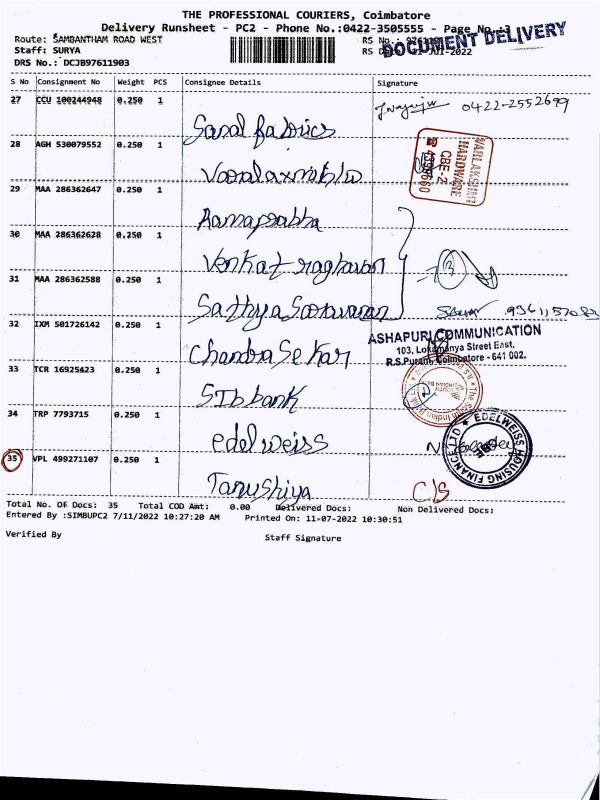 THE PROFESSIONAL COURIERS, Coimbatore
Delivery Runsheet - PC2 - Phone No.:0422-3505555 - Page No.:3
DOCUMENT DELIVERY
Route: SAMBANTHAM ROAD WEST
Staff: SURYA
DRS No.: DCJB97611903
S No Consignment No Weight PCS Consignee Details Signature
27 CCU 100244948 0.250 1
Saral fabrics 0422-2552699
28 AGH 530079552 0.250 1
VARLAKSHMI
HARDWARE
CBE-2
29 MAA 286362647 0.250 1
Ramaprabha
30 MAA 286362628 0.250 1
Venkat raghavan
31 MAA 286362588 0.250 1
Sathya Saravanan
32 IXM 501726142 0.250 1
Chandrasekar
ASHAPURI COMMUNICATION
103, Lokamanya Street East,
R.S.Puram, Coimbatore - 641 002.
33 TCR 16925423 0.250 1
SIb bank
34 TRP 7793715 0.250 1
edelweiss
EDELWEISS HOUSING FINANCE LTD
35 VPL 499271107 0.250 1
Tanushiya C/S
Total No. Of Docs: 35 Total COD Amt: 0.00 Delivered Docs: Non Delivered Docs:
Entered By :SIMBUPC2 7/11/2022 10:27:20 AM Printed On: 11-07-2022 10:30:51
Verified By Staff Signature